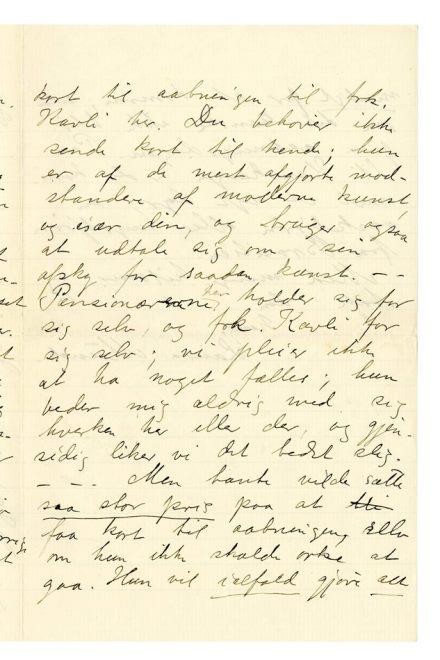 kort til aabningen til frk.
Kavli her. Du behøver ikke
sende kort til hende; hun
er af de mest afgjorte mod-
standere af moderne kunst
og især din, og bruger ogsaa
at udtale sig om sin
afsky for saadan kunst. – –
Pensionærerne her holder sig for
sig selv, og frk. Kavli for
sig selv; vi pleier ikke
at ha noget fælles; hun
beder mig aldrig med sig
hverken her eller der, og gjen-
sidig liker vi det bedst slig.
– – – Men tante vilde sætte
saa stor pris paa at
faa kort til aabningen, selv
om hun ikke skulde orke at
gaa. Hun vil ialfald gjøre alt